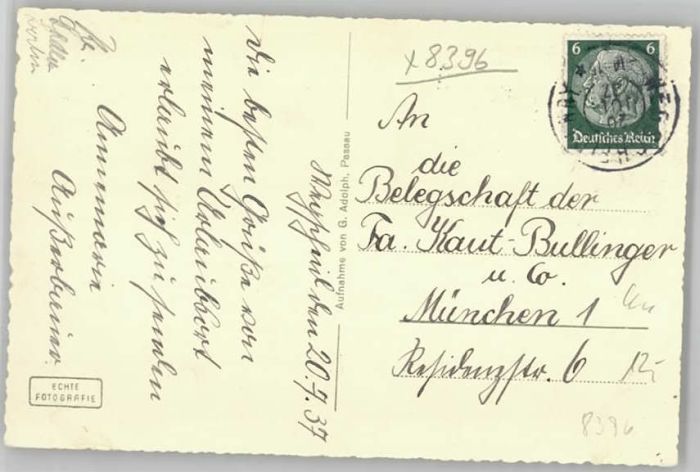 x 8396
6 6
Deutsches Reich
An
die
Belegschaft der
Fa. Kaut-Bullinger
u. Co.
München 1
Residenzstr. 6
8396
Aufnahme von G. Adolph, Passau
den 20.7.37
Die besten Grüße von
meinem Urlaubsort
erlaubt sich zu senden
Annemarie
ECHTE
FOTOGRAFIE